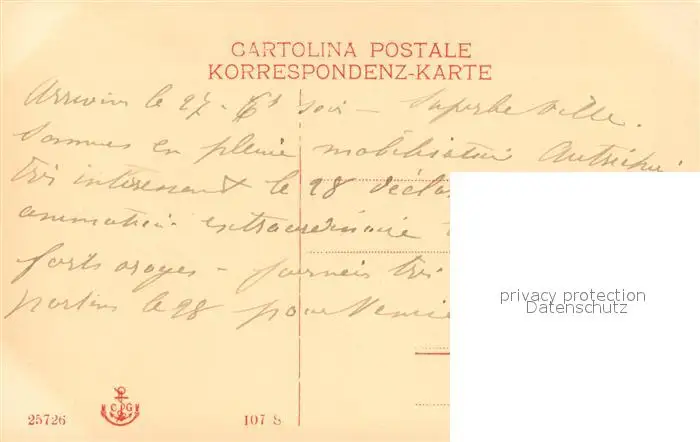 CARTOLINA POSTALE
KORRESPONDENZ-KARTE
Arrivons le 27 - 6h soir - Superbe ville.
Sommes en pleine mobilisation
très intéressant le 28
animation extraordinaire
forts orages -
partons le 28 pour Venise
privacy protection
Datenschutz
25726
C P G
107 S